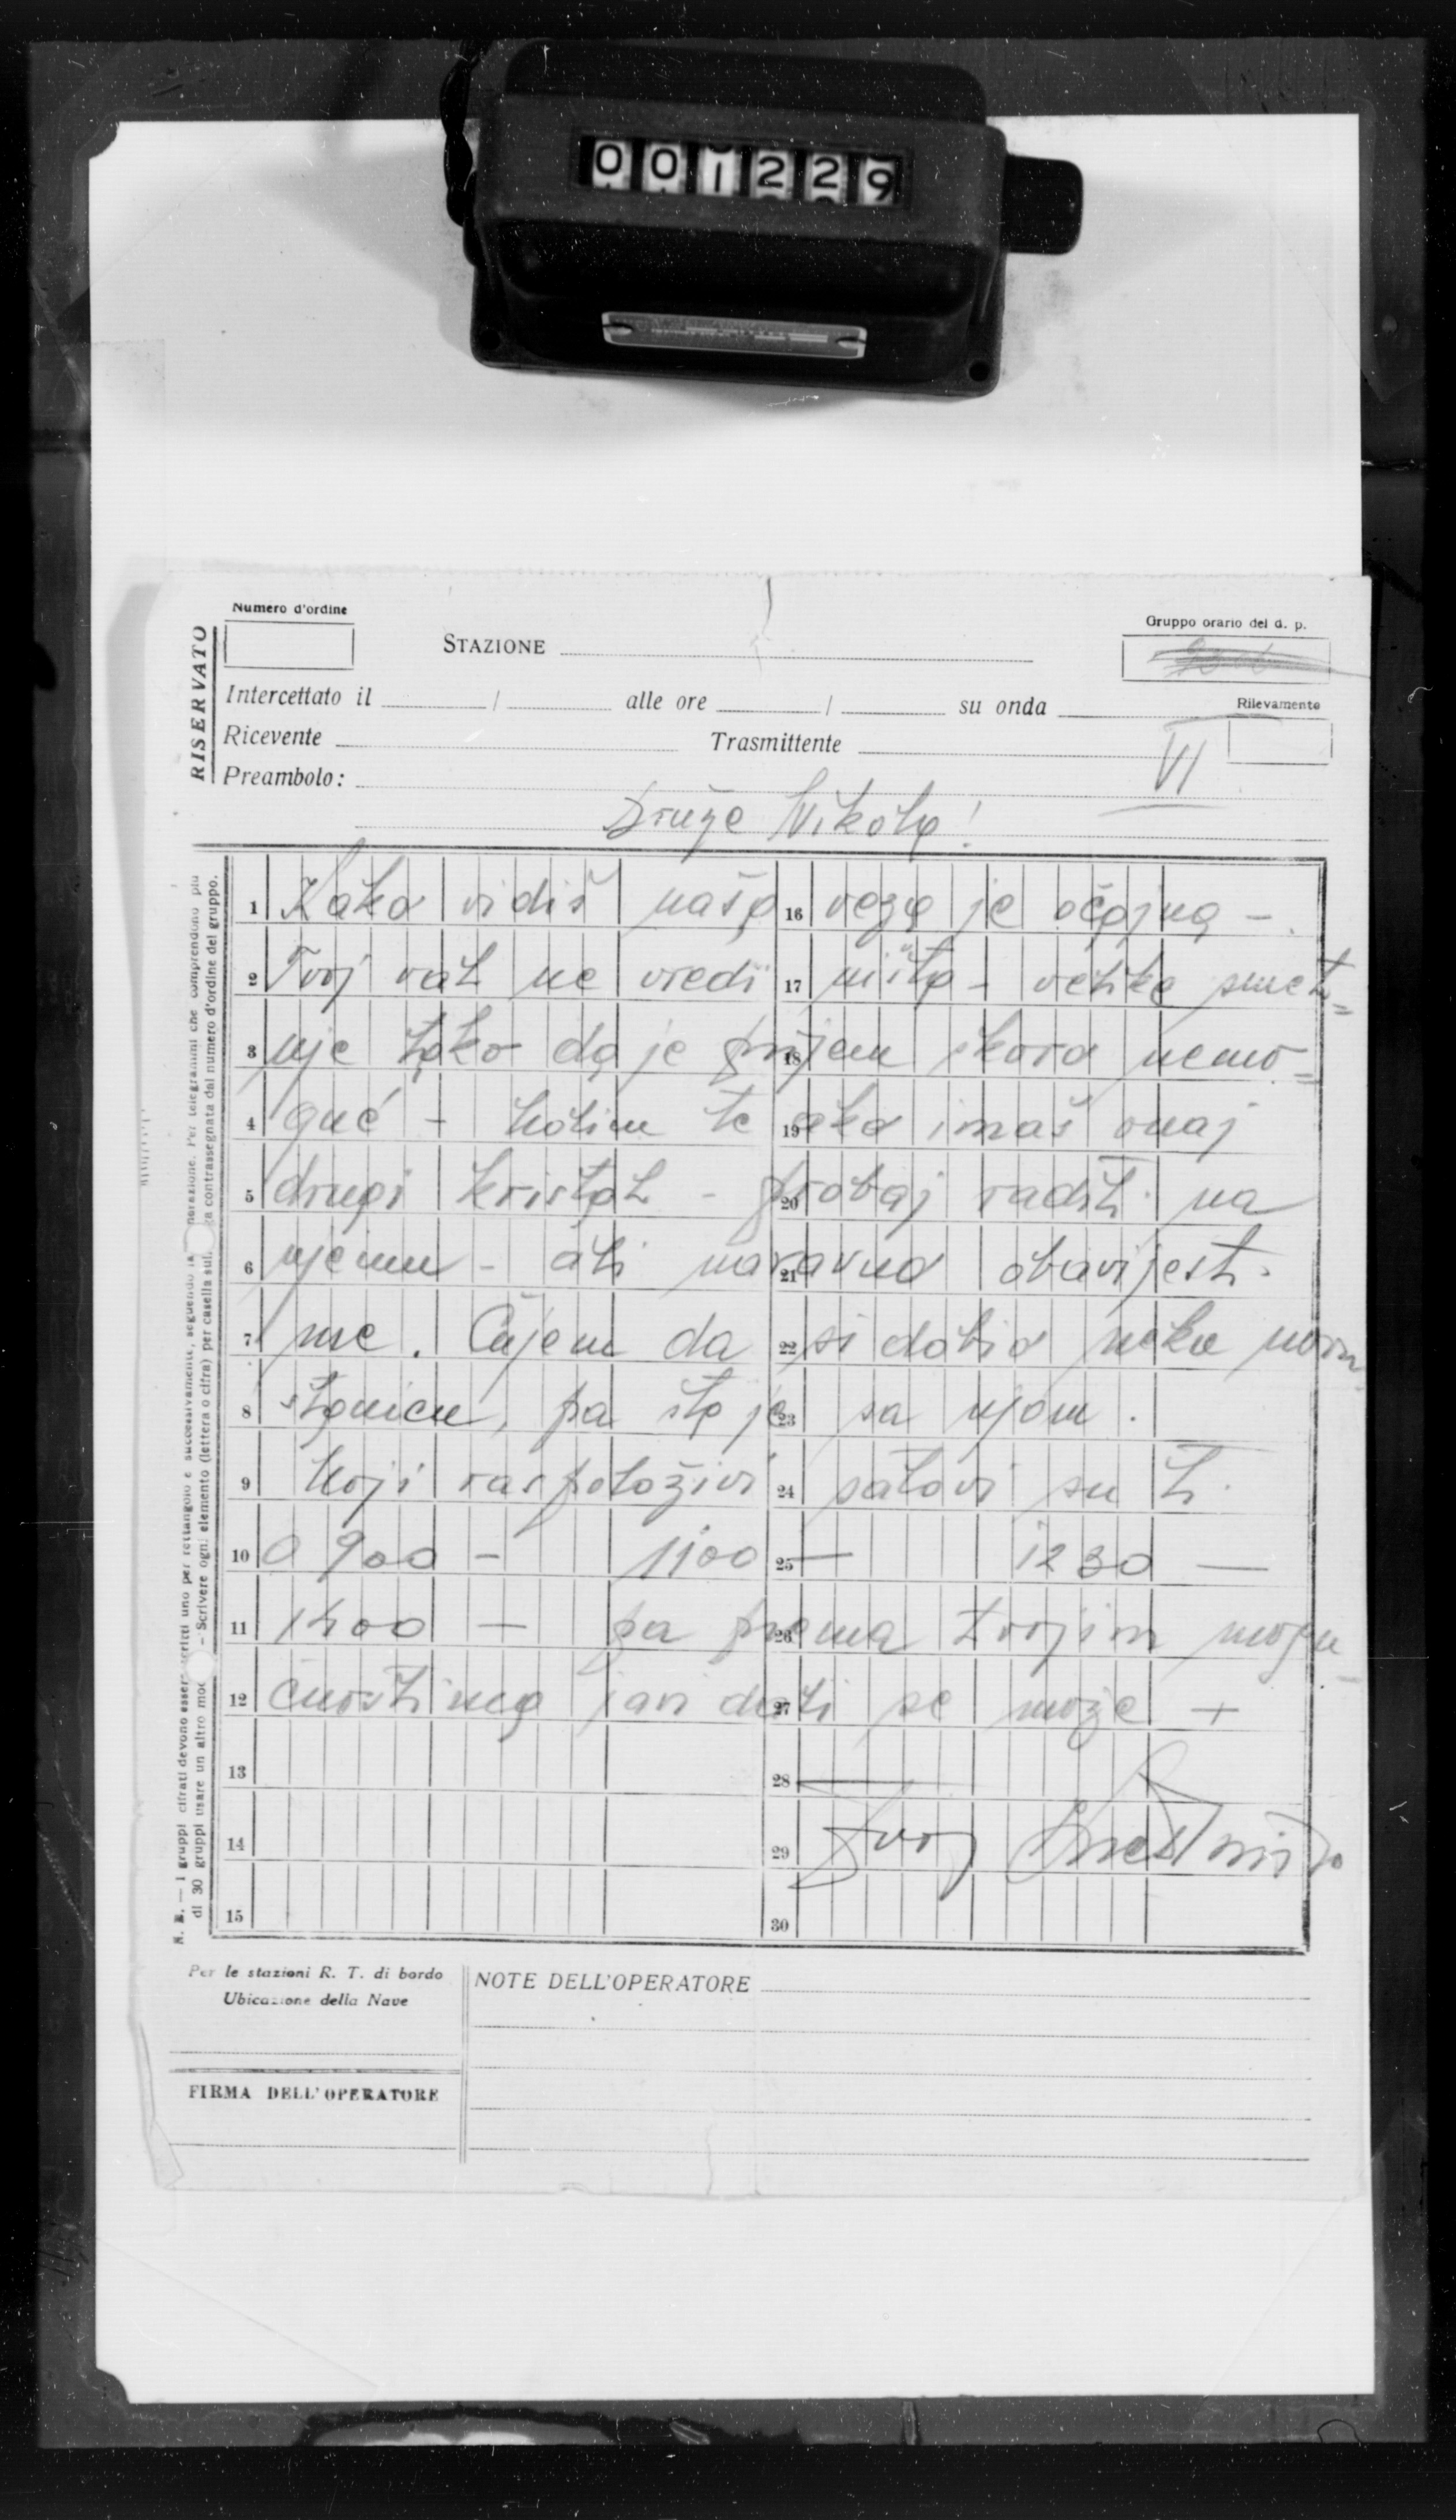 001229
Numero d'ordine
Gruppo orario del d. p.
RISERVATO
STAZIONE
Intercettato il / alle ore / su onda
Rilevamento
Ricevente Trasmittente
VI
Preambolo:
Druže Nikola!
1 Kako vidiš naša 16 veza je očajna -
2 Tvoj val ne vredi 17 ništa - velike smet=
3 nje tako da je prijem 18 skoro nemo=
4 guć - Molim te 19 ako imaš onaj
5 drugi kristal - probaj 20 raditi na
6 njemu - ali naravno 21 obavijesti
7 me. Čujem da 22 si dobio neku novu
8 stanicu, pa šta je 23 sa njom.
9 Koji raspoloživi 24 satovi su ti
10 0900 - 1100 25 - 1230 -
11 1400 - pa prema 26 tvojim mogu
12 ćnostima javi dali 27 se može +
13 28
14 29 Tvoj
15 30
N. B. — I gruppi cifrati devono essere scritti uno per rettangolo e successivamente, seguendo la numerazione. Per telegrammi che comprendono più
di 30 gruppi usare un altro mod contrassegnata dal numero d'ordine del gruppo.
- Scrivere ogni elemento (lettera o cifra) per casella
Per le stazioni R. T. di bordo
Ubicazione della Nave
NOTE DELL'OPERATORE
FIRMA DELL'OPERATORE